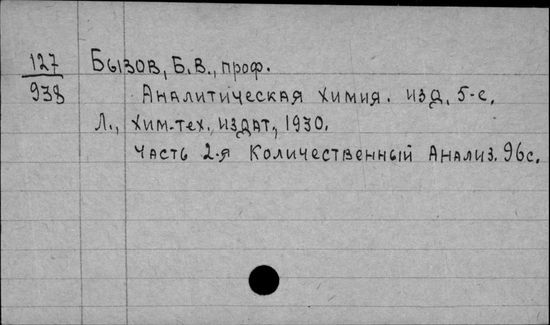 127 Бызов, Б.В., проф.
938 Аналитическая химия. изд. 5-е.
Л., Хим-тех. издат, 1930.
Часть 2-я Количественный Анализ. 96с.